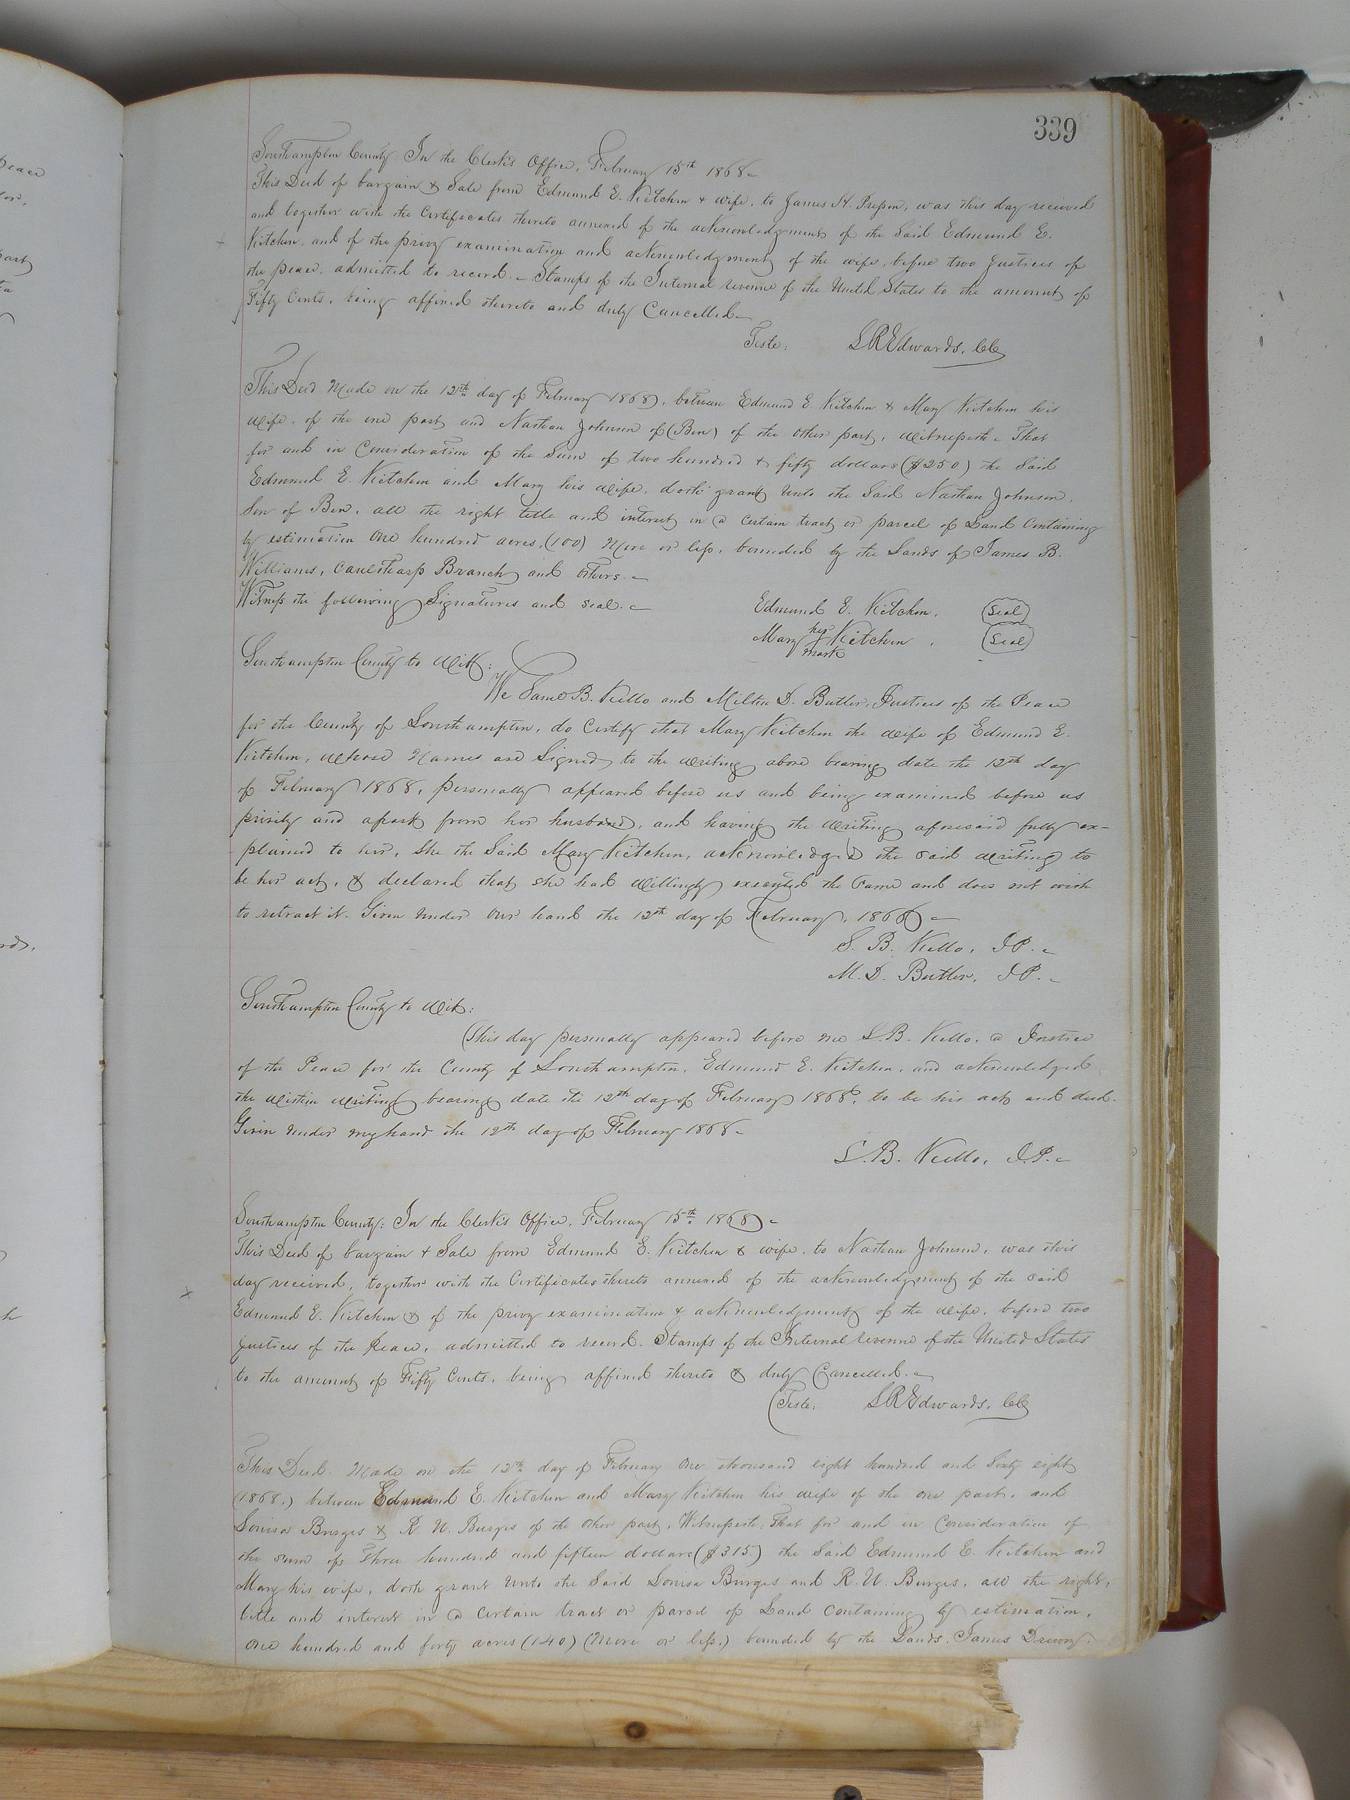 339
Southampton County In the Clerk's Office, February 15th 1868-
This Deed of bargain & Sale from Edmund E. Kitchen & wife, to James H. was this day received
and together with the Certificates thereto annexed of the acknowledgment of the Said Edmund E.
Kitchen, and of the privy examination and acknowledgment of the wife, before two Justices of
the peace, admitted to record. - Stamps of the Internal revenue of the United States to the amount of
Fifty Cents, being affixed thereto and duly Cancelled-
Teste: L R Edwards, CC
This Deed Made on the 12th day of February 1868, between Edmund E. Kitchen & Mary Kitchen his
Wife, of the one part and Nathan Johnson of (Ben) of the other part, Witnesseth- That
for and in Consideration of the Sum of two hundred & fifty dollars ($250) the Said
Edmund E. Kitchen and Mary his Wife, doth grant Unto the Said Nathan Johnson,
Son of Ben, all the right title and interest in a certain tract or parcel of Land Containing
by estimation One hundred acres, (100) More or less, bounded by the Lands of James B.
Williams, Branch and others. -
Witness the following Signatures and seal. -
Edmund E. Kitchen. (Seal)
her
Mary Kitchen. (Seal)
mark
Southampton County to Wit:
We B. Kello and Milton D. Butler, Justices of the Peace
for the County of Southampton, do Certify that Mary Kitchen the Wife of Edmund E.
Kitchen, Whose Names are Signed to the Writing above bearing date the 12th day
of February 1868, personally appeared before us and being examined before us
privily and apart from her husband, and having the Writing aforesaid fully ex-
plained to her, She the Said Mary Kitchen, acknowledged the said Writing to
be her act, & declared that she had Willingly executed the Same and does not wish
to retract it. Given Under Our hand the 12th day of February, 1868 -
S. B. Kello, J P. -
M. D. Butler, J P. -
Southampton County to Wit:
This day personally appeared before me S. B. Kello, a Justice
of the Peace for the County of Southampton, Edmund E. Kitchen, and acknowledged
the Within Writing bearing date the 12th day of February 1868, to be his act and deed.
Given Under my hand the 12th day of February 1868-
S. B. Kello, J. P. -
Southampton County: In the Clerk's Office, February 15th 1868 -
This Deed of bargain & Sale from Edmund E. Kitchen & wife, to Nathan Johnson, was this
day received, together with the Certificates thereto annexed of the acknowledgment of the said
Edmund E. Kitchen & of the privy examination & acknowledgment of the Wife, before two
Justices of the Peace, admitted to record. Stamps of the Internal revenue of the United States
to the amount of Fifty Cents, being affixed thereto & duly Cancelled. -
Teste: L R Edwards, CC
This Deed Made on the 12th day of February One thousand eight hundred and Sixty eight
(1868,) between Edmund E. Kitchen and Mary Kitchen his wife of the one part, and
Louisa Burges & R. U. Burges of the other part, Witnesseth, That for and in Consideration of
the sum of Three hundred and fifteen dollars ($315.) the Said Edmund E. Kitchen and
Mary his wife, doth grant Unto the Said Louisa Burges and R. U. Burges, all the right,
title and interest in a Certain tract or parcel of Land Containing by estimation,
One hundred and forty acres (140) (More or less,) bounded by the Lands, James Drewry.